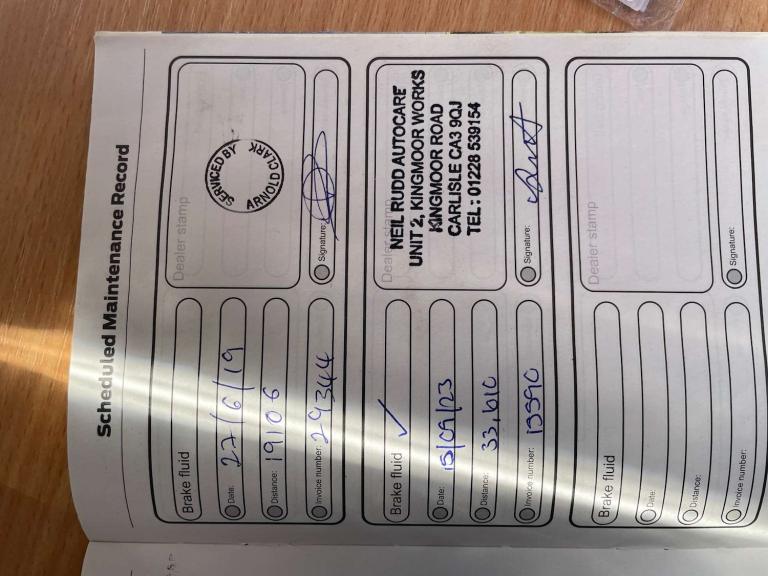 Scheduled Maintenance Record
Brake fluid
Date: 27/6/19
Distance: 19106
Invoice number: 29344
Dealer stamp
SERVICED BY
ARNOLD CLARK
Signature:
Brake fluid ✓
Date: 15/09/23
Distance: 33,610
Invoice number: 13390
Dealer stamp
NEIL RUDD AUTOCARE
UNIT 2, KINGMOOR WORKS
KINGMOOR ROAD
CARLISLE CA3 9QJ
TEL: 01228 539154
Signature:
Brake fluid
Date:
Distance:
Invoice number:
Dealer stamp
Signature: